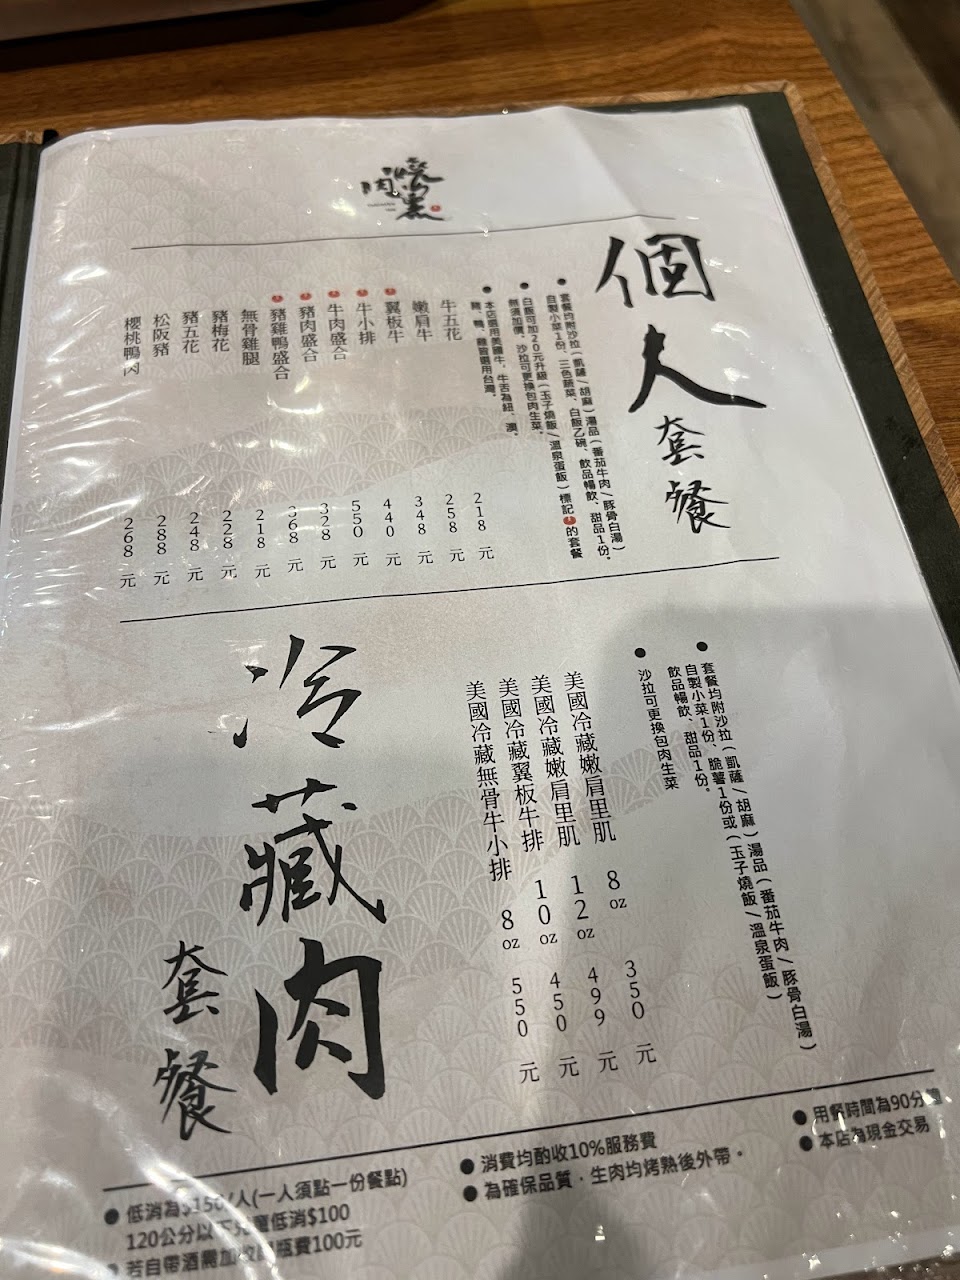 燒窯
肉
個人套餐
● 套餐均附沙拉(凱薩/胡麻)湯品(番茄牛肉/豚骨白湯)
自製小菜1份、三色蔬菜、白飯乙碗、飲品暢飲、甜品1份。
● 白飯可加20元升級(玉子燒飯/溫泉蛋飯)標記 的套餐
無須加價。沙拉可更換包肉生菜。
● 本店選用美國牛，牛舌為紐、澳。
豬、鴨、雞皆選用台灣。
牛五花 218元
嫩肩牛 258元
翼板牛 348元
牛小排 440元
牛肉盛合 550元
豬肉盛合 328元
豬雞鴨盛合 368元
無骨雞腿 218元
豬梅花 228元
豬五花 248元
松阪豬 288元
櫻桃鴨肉 268元
冷藏肉套餐
● 套餐均附沙拉(凱薩/胡麻)湯品(番茄牛肉/豚骨白湯)
自製小菜1份、脆薯1份或(玉子燒飯/溫泉蛋飯)
飲品暢飲、甜品1份。
● 沙拉可更換包肉生菜
美國冷藏嫩肩里肌 8oz 350元
美國冷藏嫩肩里肌 12oz 499元
美國冷藏翼板牛排 10oz 450元
美國冷藏無骨牛小排 8oz 550元
● 低消為$150/人(一人須點一份餐點)
120公分以下兒童低消$100
● 若自帶酒需加收開瓶費100元
● 消費均酌收10%服務費
● 為確保品質，生肉均烤熟後外帶。
● 用餐時間為90分鐘
● 本店為現金交易